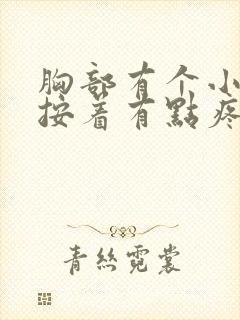 胸部有个小
按着有點疼
青絲霓裳